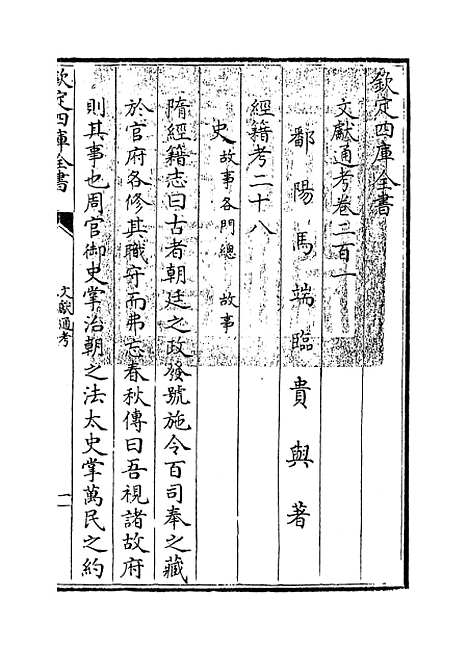 欽定四庫全書
文獻通考卷二百一
鄱陽馬端臨貴與著
經籍考二十八
史 故事各門總 故事
隋經籍志曰古者朝廷之政發號施令百司奉之藏
於官府各修其職守而弗忘春秋傳曰吾視諸故府
則其事也周官御史掌治朝之法太史掌萬民之約
欽定四庫全書
文獻通考